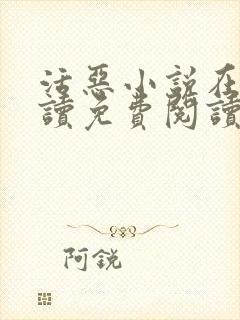 活惡小說在
讀免費閱讀
阿銳